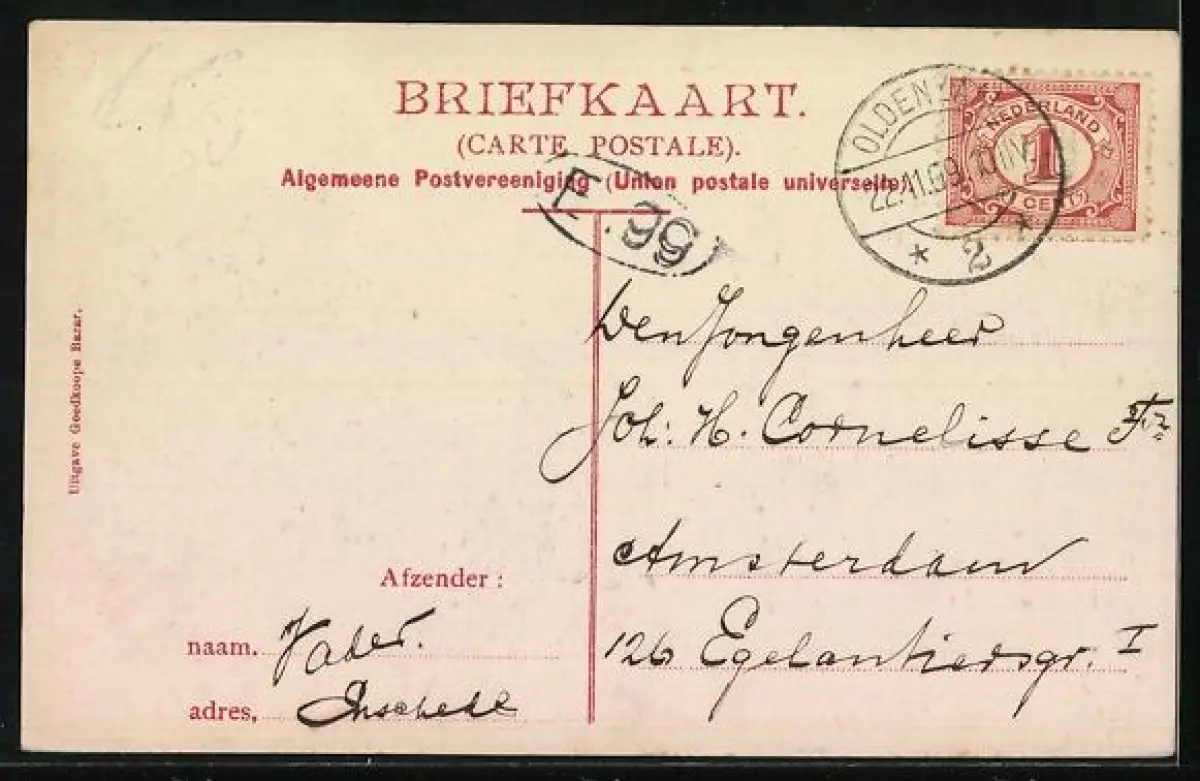 BRIEFKAART.
(CARTE POSTALE).
Algemeene Postvereeniging (Union postale universelle).
NEDERLAND
1
CENT
22.11.09
2
E. 99
Den Jongenheer
Joh: H. Cornelisse Fz
Amsterdam
126 Egelantiersgr. I
Afzender:
naam. Vader.
adres, Enschede
Uitgave Goedkoope Bazar.